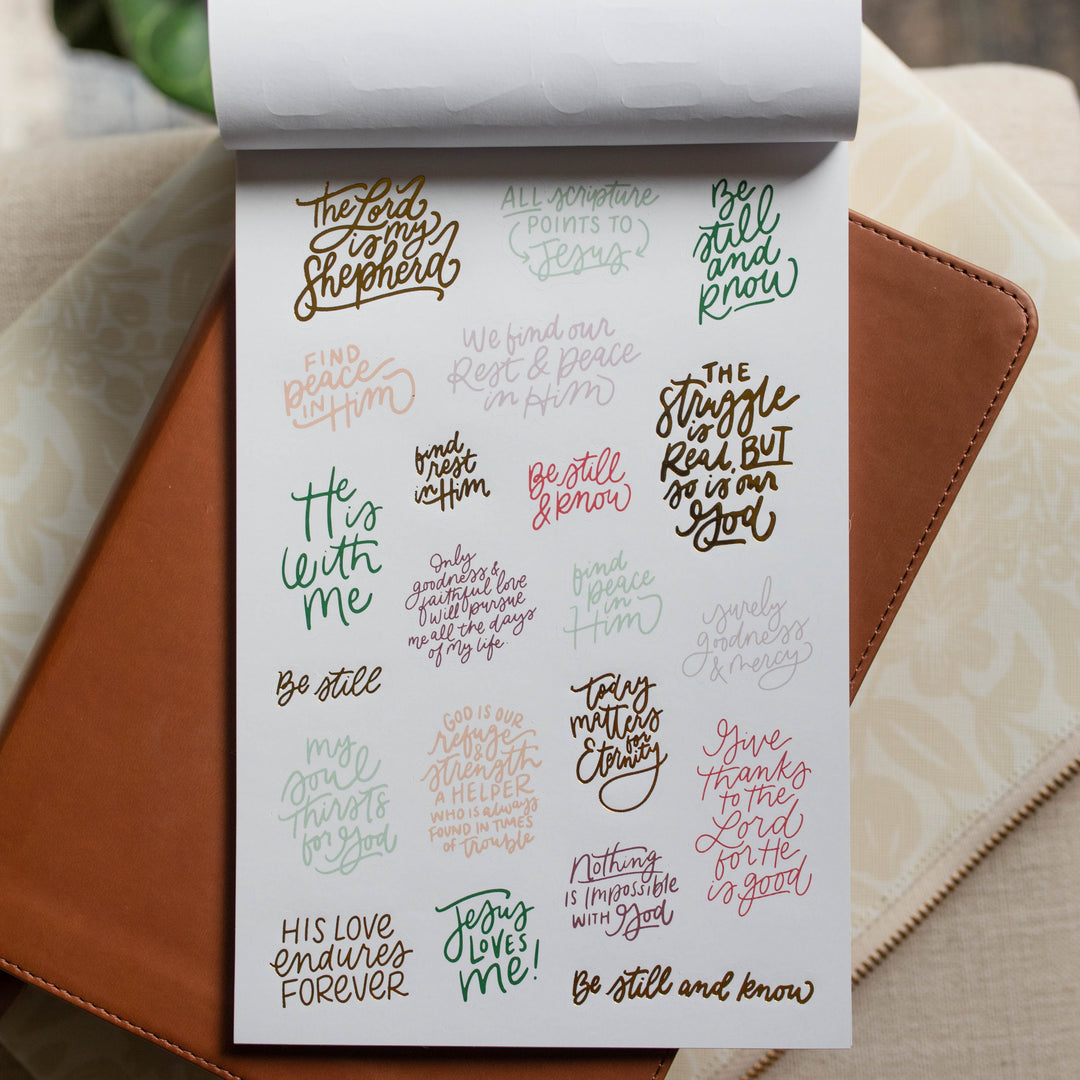 The Lord
is my
Shepherd
ALL scripture
POINTS TO
Jesus
Be
still
and
Know
FIND
peace
IN Him
We find our
Rest & Peace
in Him
THE
Struggle
is
Real, BUT
so is our
God
find
rest
in Him
Be still
& Know
He
is
with
me
Only
goodness &
faithful love
will pursue
me all the days
of my life.
find
peace
in
Him
surely
goodness
& mercy
Be still
today
matters
for
Eternity
GOD IS OUR
refuge
&
strength
A HELPER
WHO IS always
FOUND IN TIMES
of trouble
my
soul
thirsts
for God
Give
thanks
to the
Lord
for He
is good
Nothing
IS Impossible
WITH God
HIS LOVE
endures
FOREVER
Jesus
LOVES
me!
Be still and know